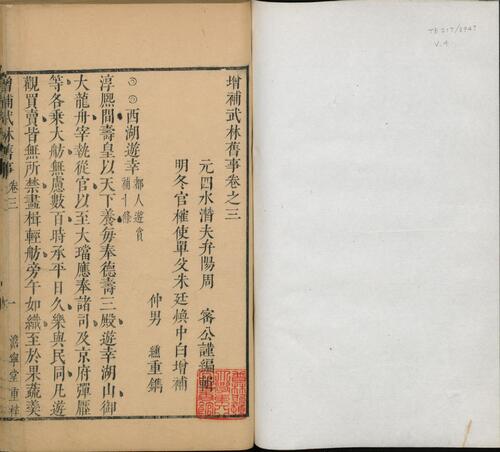 增補武林舊事卷之三
元四水潛夫弁陽周 密公謹編輯
明冬官榷使單父朱廷煥中白增補
仲男 繣重鐫
西湖遊幸 都人遊賞
補十條
淳熙間壽皇以天下養每奉德壽三殿遊幸湖山御
大龍舟宰執從官以至大璫應奉諸司及京府彈壓
等各乘大舫無慮數百時承平日久樂與民同凡遊
觀買賣皆無所禁畫楫輕舫旁午如織至於果蔬羹
增補武林舊事 卷三 一 澹寧堂重梓
V.4